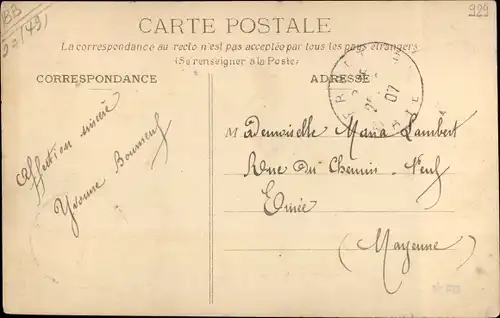 BB
929
CARTE POSTALE
La correspondance au recto n'est pas acceptée par tous les pays étrangers
(Se renseigner à la Poste)
CORRESPONDANCE
ADRESSE
07
Mademoiselle Maria Lambert
Rue du Chemin-Neuf
Ernée
(Mayenne)
Affection sincère
Yvonne